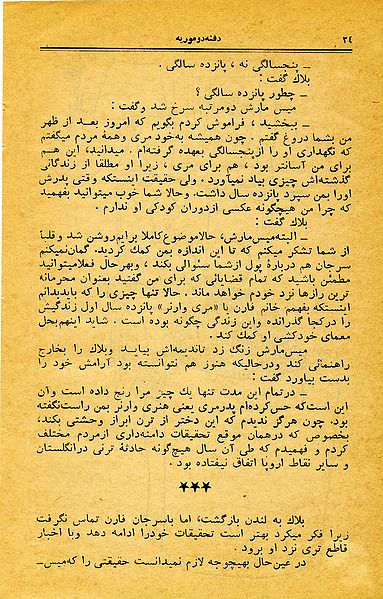 ۳۴ دفنه دوموریه
ـ پنجسالگی نه ، پانزده سالگی .
بلاك گفت :
ـ چطور پانزده سالگی ؟
میس مارش دومرتبه سرخ شد وگفت :
ـ ببخشید ، فراموش کردم بگویم که امروز بعد از ظهر
من بشما دروغ گفتم . چون همیشه به‌خود مری وهمهٔ مردم میگفتم
که نگهداری او را ازپنجسالگی بعهده گرفته‌ام . میدانید، این هـم
برای من آسانتر بود ، هم برای مری ، زیرا او مطلقا از زندگانی
گذشته‌اش چیزی بیاد نمیآورد . ولی حقیقت اینستکه وقتی پدرش
اورا بمن سپرد پانزده سال داشت. وحالا شما خوب میتوانید بفهمید
که چرا من هیچگونه عکسی ازدوران کودکی او ندارم .
بلاك گفت :
ـ البته‌میس‌مارش، حالاموضوع‌کاملا برایم‌روشن شد وقلبا
از شما تشکر میکنم که تا این اندازه بمن کمك کردید. گمان‌نمیکنم
سرجان هم دربارهٔ پول ازشما سئوالی بکند ، وبهرحال فعلامیتوانید
مطمئن باشید که تمام قضایائی که برای من گفتید بعنوان محرمانه
ترین رازها نزد خودم خواهد ماند. حالا تنها چیزی را که بایدبدانم
اینستکه بفهمم خانم فارن یا «مری وارنر» پانزده سال اول زندگیش
را درکجا گذرانده واین زندگی چگونه بوده است . شاید اینهم‌بحل
معمای خودکشی او کمك کند .
میس‌مارش زنگ زد تاندیمه‌اش بیاید وبلاك را بخارج
راهنمائی کند ودرحالیکه هنوز هم نتوانسته بود آرامش خود را
بدست بیاورد گفت :
ـ درتمام این مدت تنها یك چیز مرا رنج داده است وآن
این است‌که حس‌کرده‌ام پدرمری یعنی هنری وارنر بمن راست‌نگفته
بود. چون هرگز ندیدم که این دختر از ترن ابراز وحشتی بکند،
بخصوص که درهمان موقع تحقیقات دامنه‌داری ازمردم مختلف
کردم و فهمیدم که طی آن سال هیچگونه حادثهٔ ترنی درانگلستان
و سایر نقاط اروپا اتفاق نیفتاده بود .
★★★
بلاك به لندن بازگشت، اما باسرجان فارن تماس نگرفت
زیرا فکر میکرد بهتر است تحقیقات خودرا ادامه دهد وبا اخبار
قاطع تری نزد او برود .
در عین‌حال بهیچوجه لازم نمیدانست حقیقتی را که‌میس‌ـ